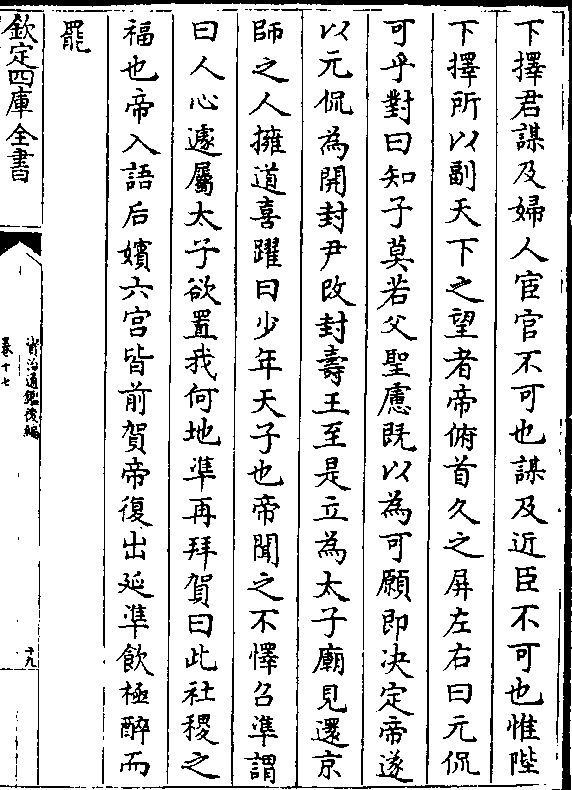 下擇君謀及婦人宦官不可也謀及近臣不可也惟陛
下擇所以副天下之望者帝俯首久之屏左右曰元侃
可乎對曰知子莫若父聖慮既以為可願即決定帝遂
以元侃為開封尹改封壽王至是立為太子廟見還京
師之人擁道喜躍曰少年天子也帝聞之不懌召準謂
曰人心遽屬太子欲置我何地準再拜賀曰此社稷之
福也帝入語后嬪六宮皆前賀帝復出延準飲極醉而
罷
欽定四庫全書
資治通鑑後編
卷十七
十九